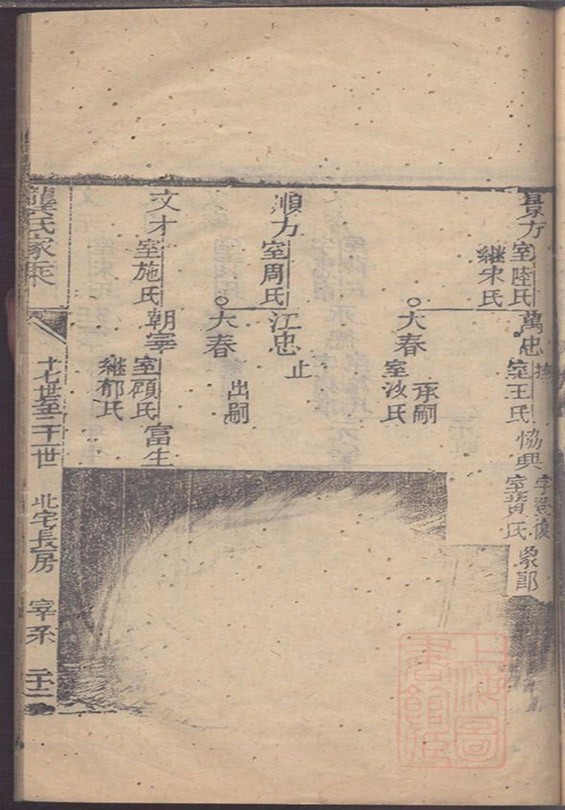 景方
室陸氏
繼宋氏
萬忠
室王氏
協興
字發復
室黃氏
象郎
大春
承嗣
室沙氏
順方
室周氏
江忠
止
大春
出嗣
文才
室施氏
朝華
室顧氏
繼郁氏
富生
龔氏家乘
十七世至二十一世
北宅長房
宰系
上海圖書館藏